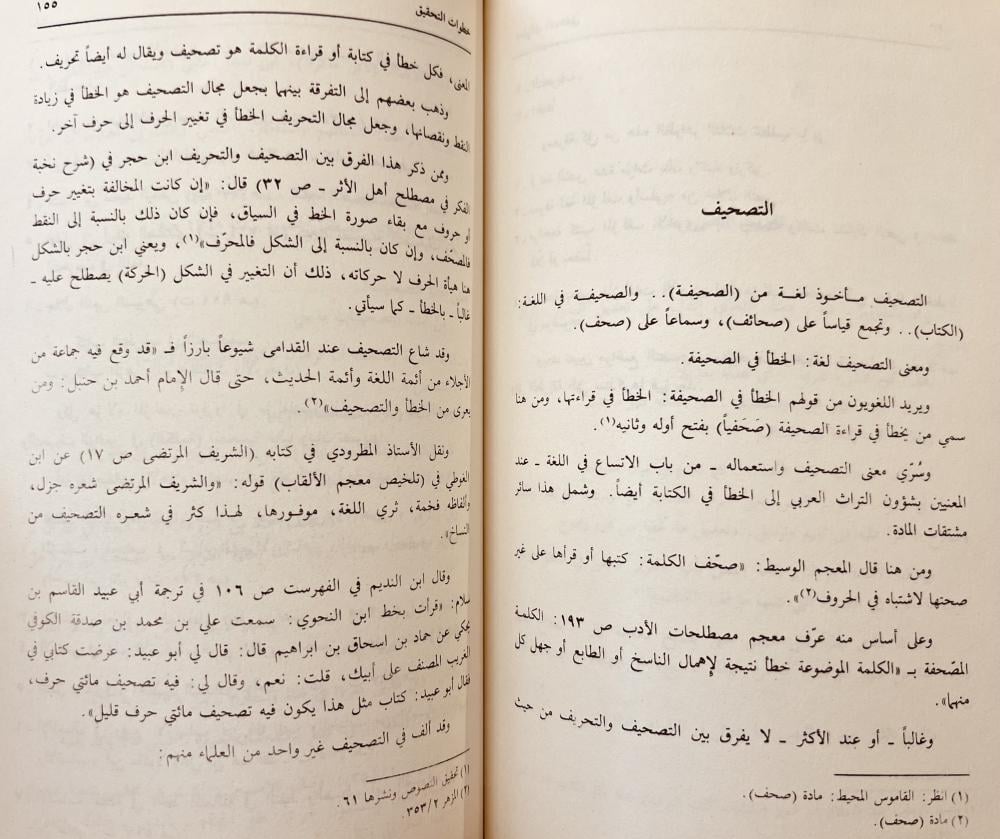 التصحيف
التصحيف مأخوذ لغة من (الصحيفة).. والصحيفة في اللغة:
(الكتاب).. وتجمع قياساً على (صحائف)، وسماعاً على (صحف).
ومعنى التصحيف لغة: الخطأ في الصحيفة.
ويريد اللغويون من قولهم الخطأ في الصحيفة: الخطأ في قراءتها، ومن هنا
سمي من يخطأ في قراءة الصحيفة (صَحَفياً) بفتح أوله وثانيه(١).
وسُرّي معنى التصحيف واستعماله ـ من باب الاتساع في اللغة ـ عند
المعنيين بشؤون التراث العربي إلى الخطأ في الكتابة أيضاً. وشمل هذا سائر
مشتقات المادة.
ومن هنا قال المعجم الوسيط: «صحّف الكلمة: كتبها أو قرأها على غير
صحتها لاشتباه في الحروف(٢)».
وعلى أساس منه عرّف معجم مصطلحات الأدب ص ١٩٣: الكلمة
المصّحفة بـ «الكلمة الموضوعة خطأ نتيجة لإهمال الناسخ أو الطابع أو جهل كل
منهما».
وغالباً ـ أو عند الأكثر ـ لا يفرق بين التصحيف والتحريف من حيث
(١) انظر: القاموس المحيط: مادة (صحف).
(٢) مادة (صحف).
خطوات التحقيق
١٥٥
المعنى، فكل خطأ في كتابة أو قراءة الكلمة هو تصحيف ويقال له أيضاً تحريف.
وذهب بعضهم إلى التفرقة بينهما بجعل مجال التصحيف هو الخطأ في زيادة
النقط ونقصانها، وجعل مجال التحريف الخطأ في تغيير الحرف إلى حرف آخر.
وممن ذكر هذا الفرق بين التصحيف والتحريف ابن حجر في (شرح نخبة
الفكر في مصطلح أهل الأثر ـ ص ٣٢) قال: «إن كانت المخالفة بتغيير حرف
أو حروف مع بقاء صورة الخط في السياق، فإن كان ذلك بالنسبة إلى النقط
فالمصّحف، وإن كان بالنسبة إلى الشكل فالمحرّف»(١)، ويعني ابن حجر بالشكل
هنا هيأة الحرف لا حركاته، ذلك أن التغيير في الشكل (الحركة) يصطلح عليه ـ
غالباً ـ بالخطأ ـ كما سيأتي.
وقد شاع التصحيف عند القدامى شيوعاً بارزاً فـ «قد وقع فيه جماعة من
الأجلاء من أئمة اللغة وأئمة الحديث، حتى قال الإمام أحمد بن حنبل: ومن
يعرى من الخطأ والتصحيف»(٢).
ونقل الأستاذ المطرودي في كتابه (الشريف المرتضى ص ١٧) عن ابن
الفوطي في (تلخيص معجم الألقاب) قوله: «والشريف المرتضى شعره جزل،
وألفاظه فخمة، ثري اللغة، موفورها، لهذا كثر في شعره التصحيف من
النساخ».
وقال ابن النديم في الفهرست ص ١٠٦ في ترجمة أبي عبيد القاسم بن
سلام: «قرأت بخط ابن النحوي: سمعت علي بن محمد بن صدقة الكوفي
يحكي عن حماد بن اسحاق بن ابراهيم قال: قال لي أبو عبيد: عرضت كتابي في
الغريب المصنف على أبيك، قلت: نعم، وقال لي: فيه تصحيف مائتي حرف،
فقال أبو عبيد: كتاب مثل هذا يكون فيه تصحيف مائتي حرف قليل».
وقد ألف في التصحيف غير واحد من العلماء منهم:
(١) تحقيق النصوص ونشرها ٦١.
(٢) المزهر ٢/٣٥٣.